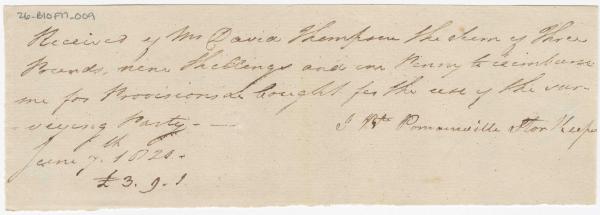 26-B10F17-009
Received of Mr David Thompson the sum of Three
Pounds, nine Shillings and one Penny to reimburse
me for Provisions bought for the use of the sur-
-veying Party.
J Bte Pomainville Stor Keeper
June 7th 1820.
£3.9.1